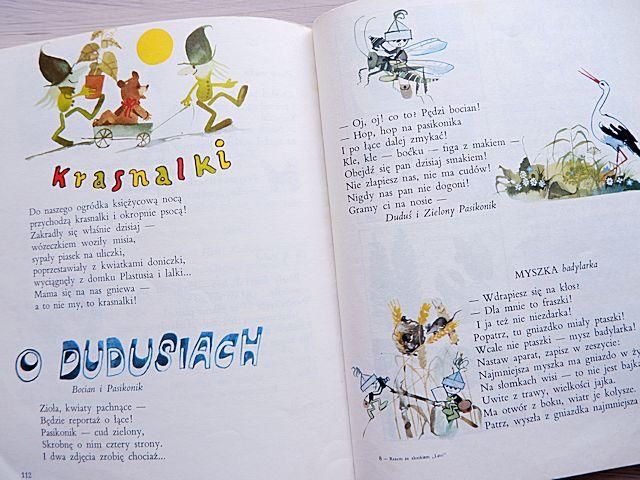 Krasnalki
Do naszego ogródka księżycową nocą
przychodzą krasnalki i okropnie psocą!
Zakradły się właśnie dzisiaj —
wózeczkiem woziły misia,
sypały piasek na uliczki,
poprzestawiały z kwiatkami doniczki,
wyciągnęły z domku Plastusia i lalki...
Mama się na nas gniewa —
a to nie my, to krasnalki!
O DUDUSIACH
Bocian i Pasikonik
Zioła, kwiaty pachnące —
Będzie reportaż o łące!
Pasikonik — cud zielony,
Skrobnę o nim cztery strony.
I dwa zdjęcia zrobię chociaż...
112
— Oj, oj! co to? Pędzi bocian!
— Hop, hop na pasikonika
I po łące dalej zmykać!
Kle, kle — boćku — figa z makiem —
Obejdź się pan dzisiaj smakiem!
Nie złapiesz nas, nie ma cudów!
Nigdy nas pan nie dogoni!
Gramy ci na nosie —
Duduś i Zielony Pasikonik
MYSZKA badylarka
— Wdrapiesz się na kłos?
— Dla mnie to fraszki!
I ja też nie niezdarka!
Popatrz, tu gniazdko miały ptaszki!
Wcale nie ptaszki — mysz badylarka!
Nastaw aparat, zapisz w zeszycie:
Najmniejsza myszka ma gniazdo w ży
Na słomkach wisi — to nie jest bajka
Uwite z trawy, wielkości jajka.
Ma otwór z boku, wiatr je kołysze.
Patrz, wyszła z gniazdka najmniejsza
8 — Razem ze słonkiem „Lato”